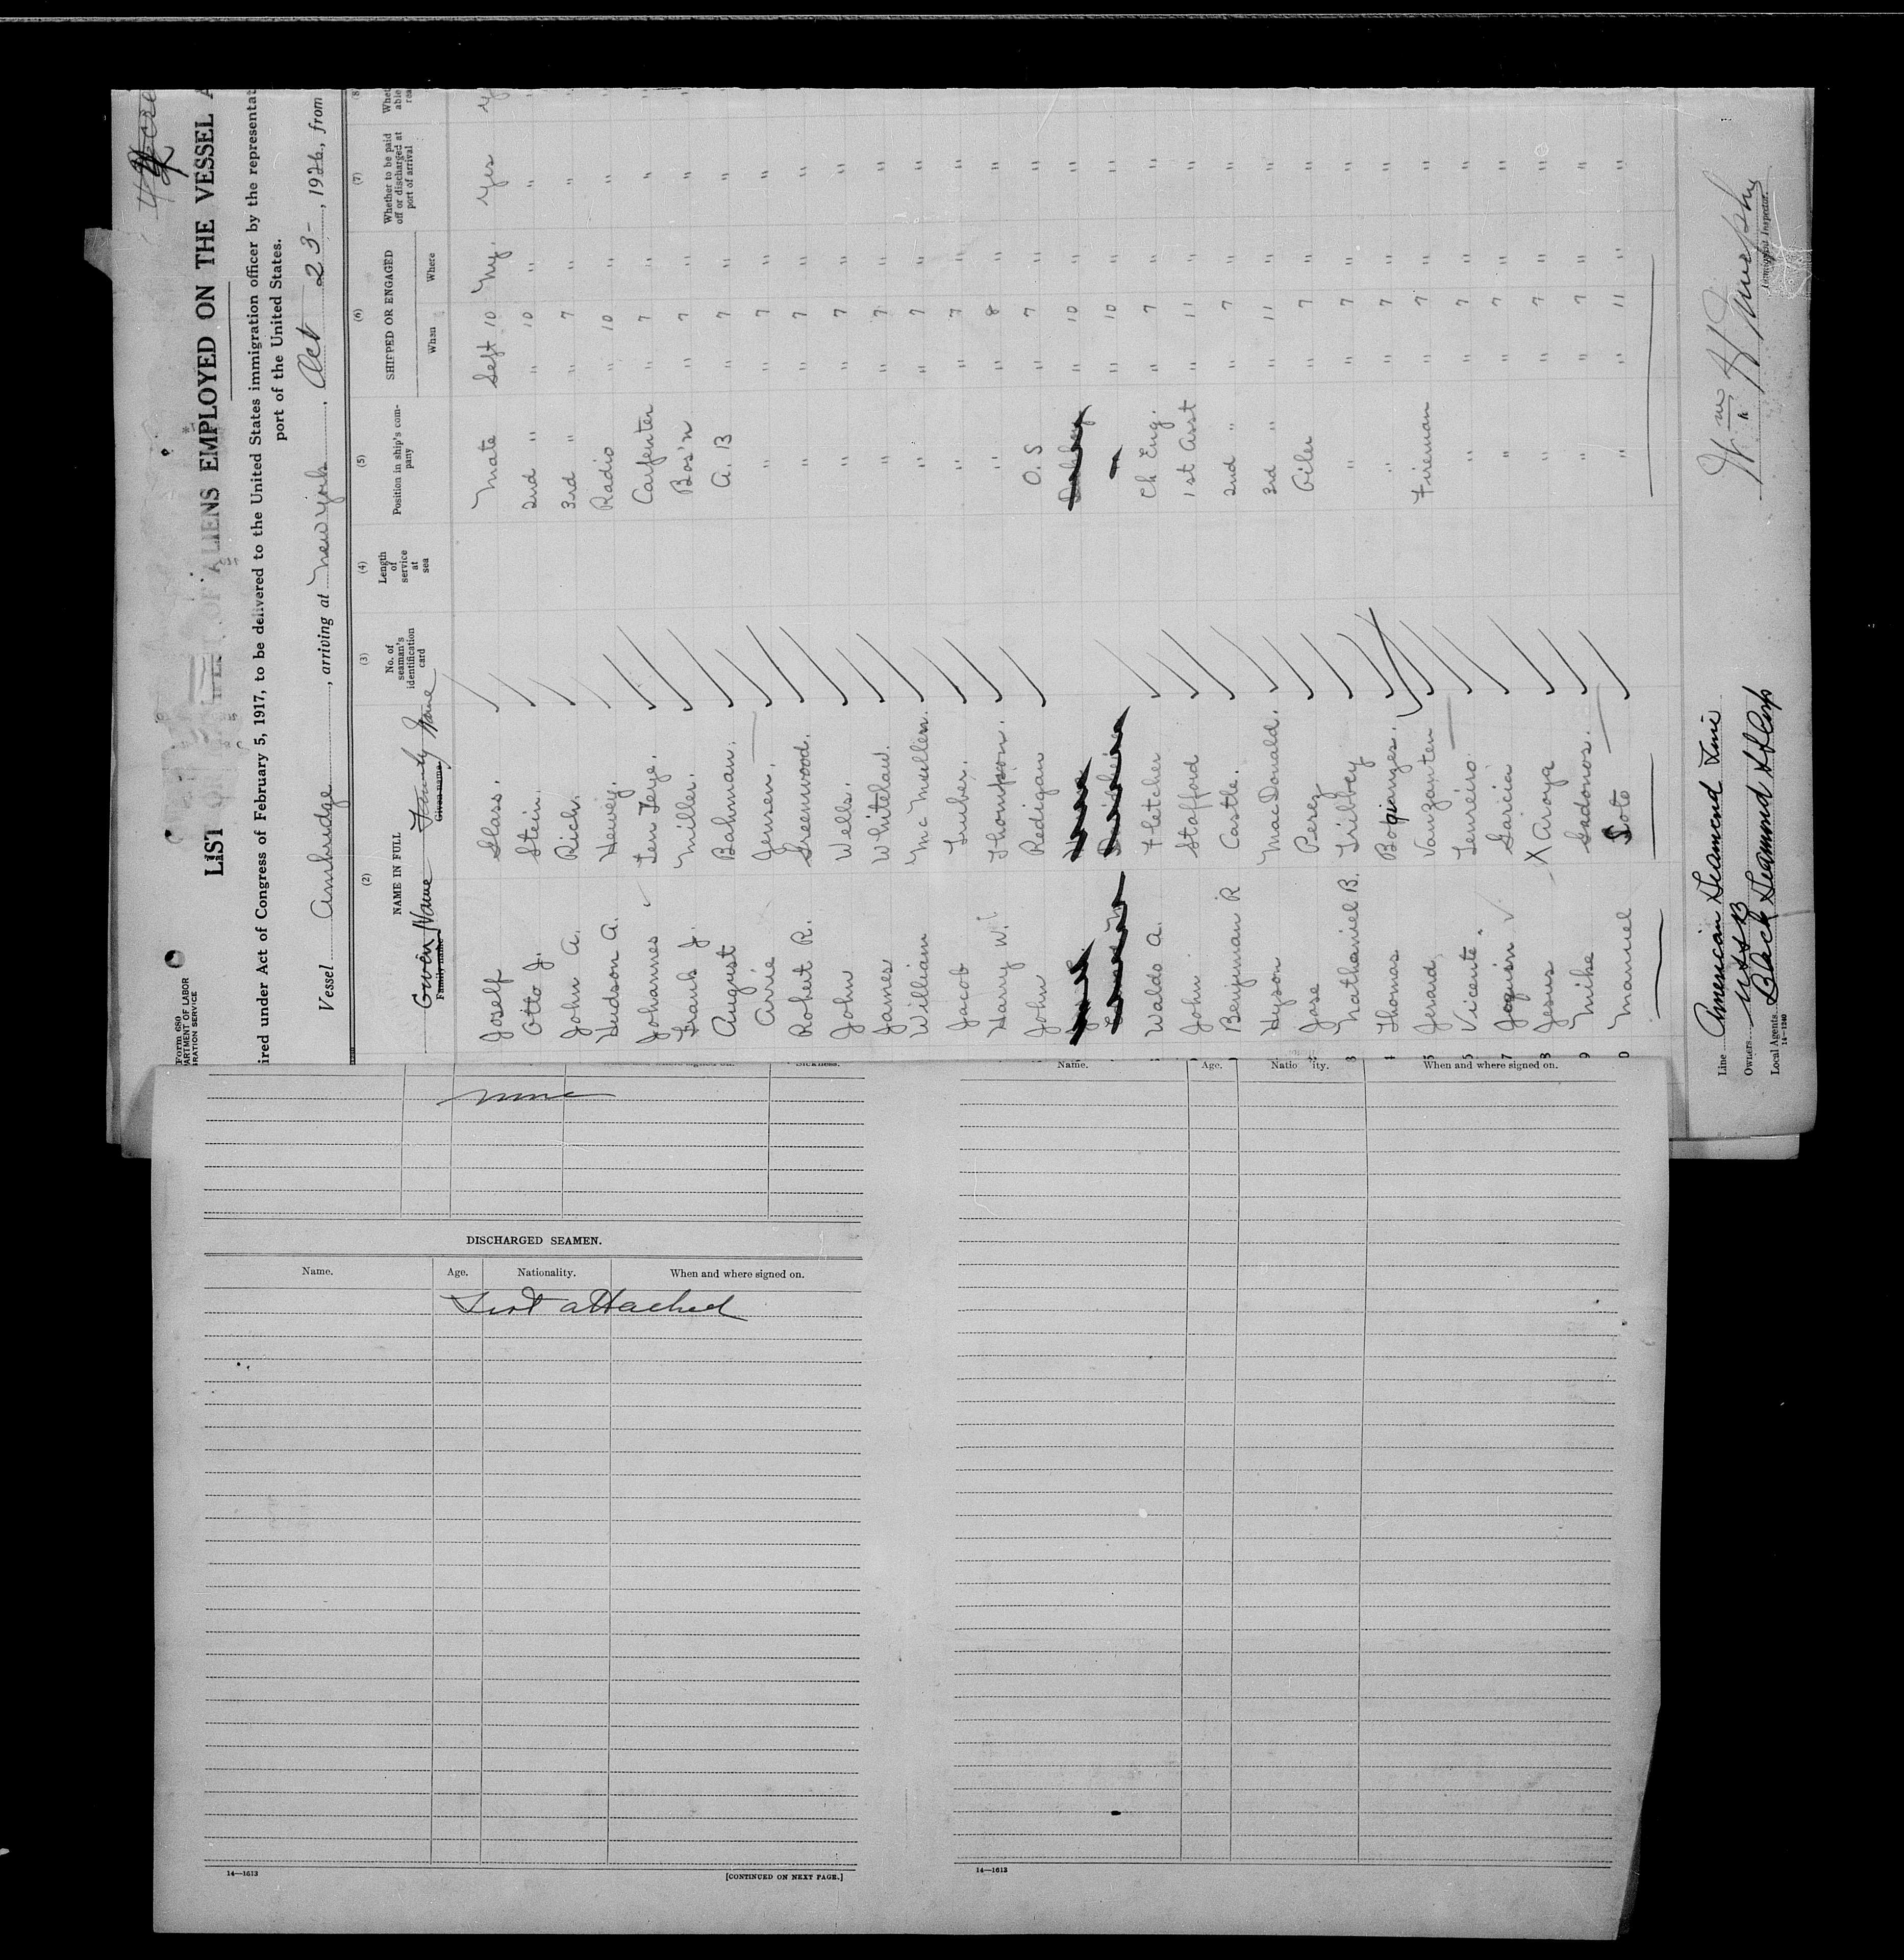 Form 680
ARTMENT OF LABOR
IRATION SERVICE
LIST OF ALIENS EMPLOYED ON THE VESSEL A
ired under Act of Congress of February 5, 1917, to be delivered to the United States immigration officer by the representat
port of the United States.
Vessel Ambridge, arriving at New York, Oct 23-, 1926, from
(2) (3) (4) (5) (6) (7) (8)
NAME IN FULL
Given Name Family Name
Family name Given name
No. of seaman's identification card
Length of service at sea
Position in ship's company
SHIPPED OR ENGAGED
When Where
Whether to be paid off or discharged at port of arrival
Joself Glass. Mate Sept 10 NY. Yes
Otto J. Stein. 2nd " " 10 " "
John A. Rich. 3rd " " 7 " "
Hudson A. Hewey. Radio " 10 " "
Johannes Ten Feye. Carpenter " 7 " "
Frank J. Miller. Bos'n " 7 " "
August Bahman. A. B " 7 " "
Arrie Jensen. " " 7 " "
Robert R. Greenwood. " " 7 " "
John Wells. " " 7 " "
James Whitelaw. " " 7 " "
William McMullen. " " 7 " "
Jacob Gruber. " " 7 " "
Harry W. Thompson. " " 8 " "
John Redigan O. S " 7 " "
" 10 " "
" 10 " "
Waldo A. Fletcher Ch Eng. " 7 " "
John Stafford 1st Asst " 11 " "
Benjiman R Castle. 2nd " " 7 " "
Hyson MacDonald. 3rd " " 11 " "
Jose Perez Oiler " 7 " "
Nathaniel B. Tribbey " " 7 " "
Thomas " " 7 " "
Jerard Vanzanten Fireman " 7 " "
Vicente Tenreiro " " 7 " "
Joquin Garicia " " 7 " "
Jesus X Aroya " " 7 " "
Mike Sadonos. " " 7 " "
Manuel Soto " " 11 " "
Line American Diamond Line
Owners USSB
Local Agents Black Diamond SS Corp
14-1240
Wm H Murphy
Immigrant Inspector.
none
DISCHARGED SEAMEN.
Name. Age. Nationality. When and where signed on.
List attached
14—1613
[CONTINUED ON NEXT PAGE.]
Name. Age. Nationality. When and where signed on.
14—1613